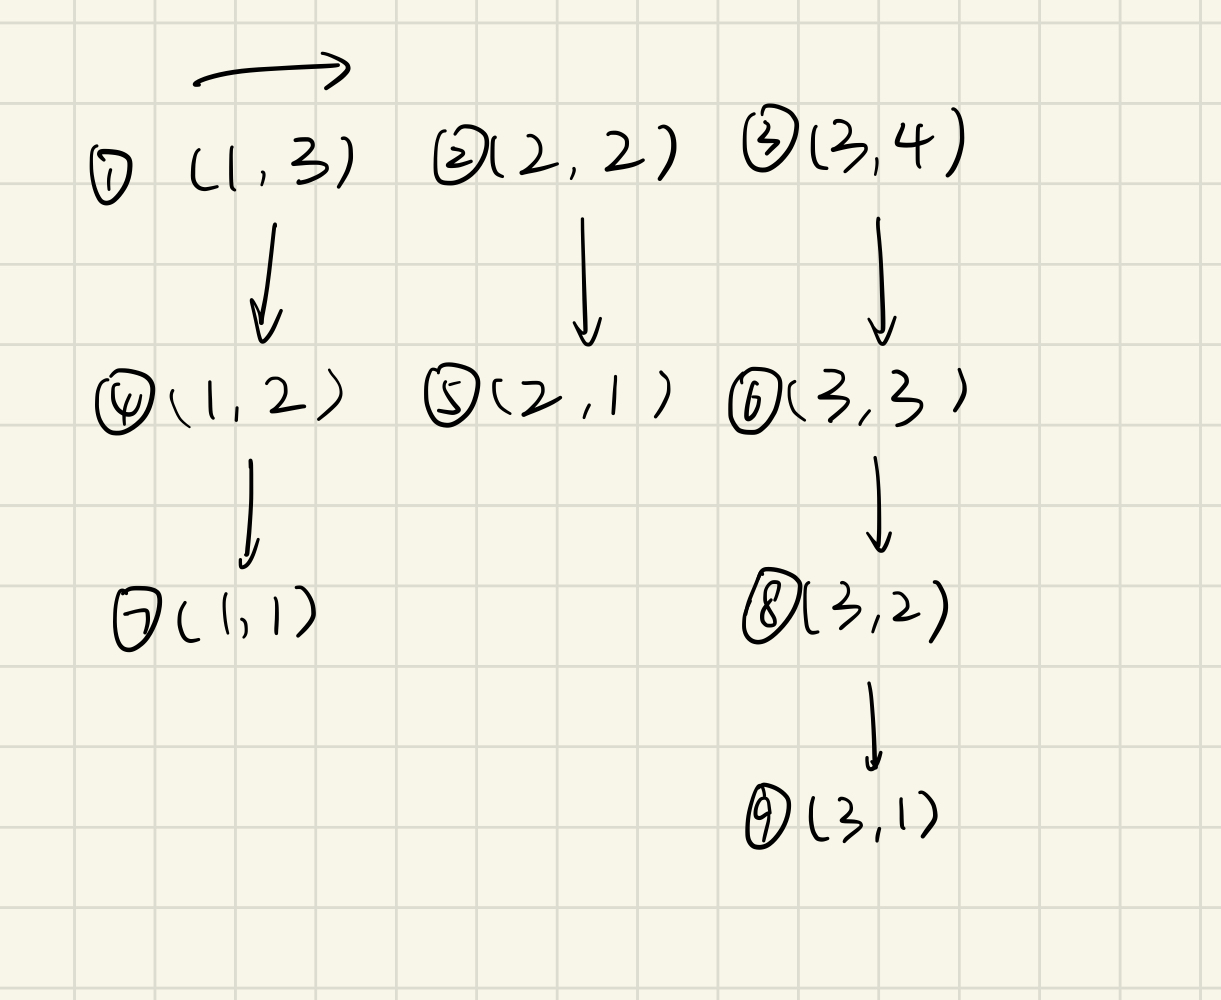 ① (1,3) ②(2,2) ③(3,4)
④(1,2) ⑤(2,1) ⑥(3,3)
⑦(1,1) ⑧(3,2)
⑨(3,1)